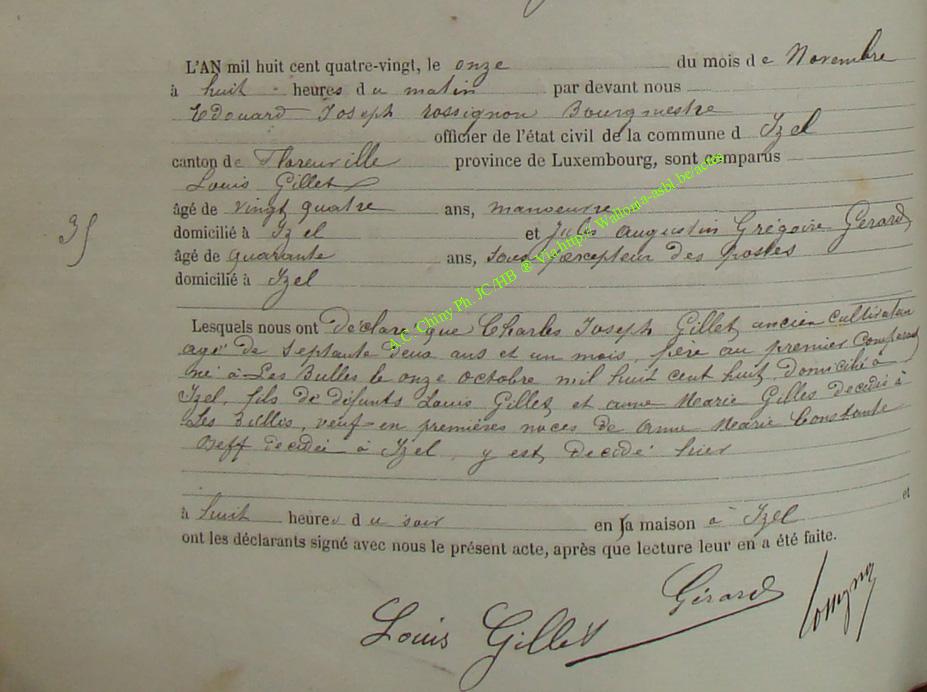 L'AN mil huit cent quatre-vingt, le onze du mois de Novembre
à huit heures du matin par devant nous
Edouard Joseph Rossignon Bourgmestre
officier de l'état civil de la commune d Izel
canton de Florenville province de Luxembourg, sont comparus
Louis Gillet
âgé de vingt quatre ans, manoeuvre
domicilié à Izel et Jules Augustin Grégoire Gerard
âgé de quarante ans, Sous percepteur des postes
domicilié à Izel
35
Lesquels nous ont déclaré que Charles Joseph Gillet, ancien cultivateur
agé de septante deux ans et un mois, père au premier comparant
né à Les Bulles le onze octobre mil huit cent huit, domicilié à
Izel, fils de défunts Louis Gillet et anne Marie Gilles décédés à
Les Bulles, veuf en premières noces de Anne Marie Constante
décédée à Izel, y est décédé hier
à huit heures du soir en sa maison à Izel et
ont les déclarants signé avec nous le présent acte, après que lecture leur en a été faite.
Gérard
Louis Gillet
A.C. Chiny Ph. JC/HB @ Via http://Wallonia-asbl.be/actes